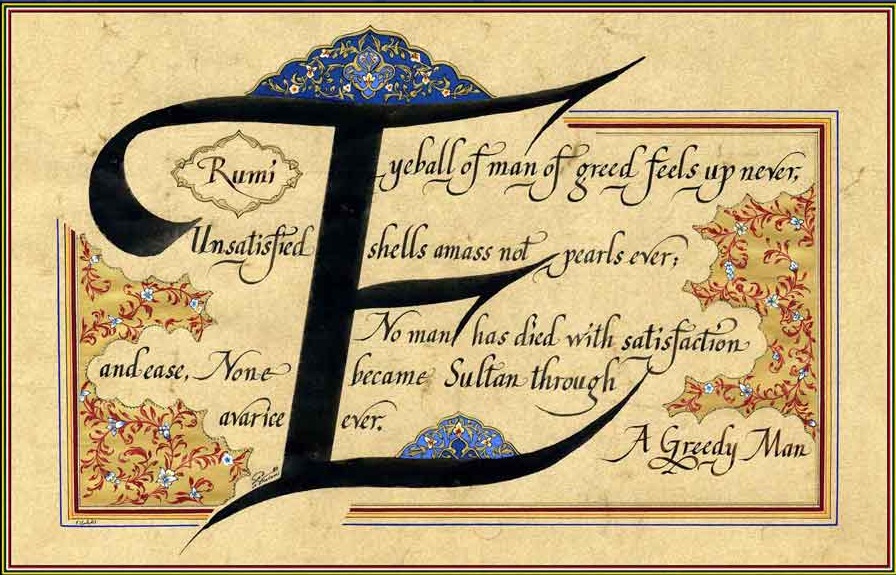 Rumi
Eyeball of man of greed feels up never,
Unsatisfied shells amass not pearls ever;
No man has died with satisfaction
and ease, None became Sultan through
avarice ever.
A Greedy Man